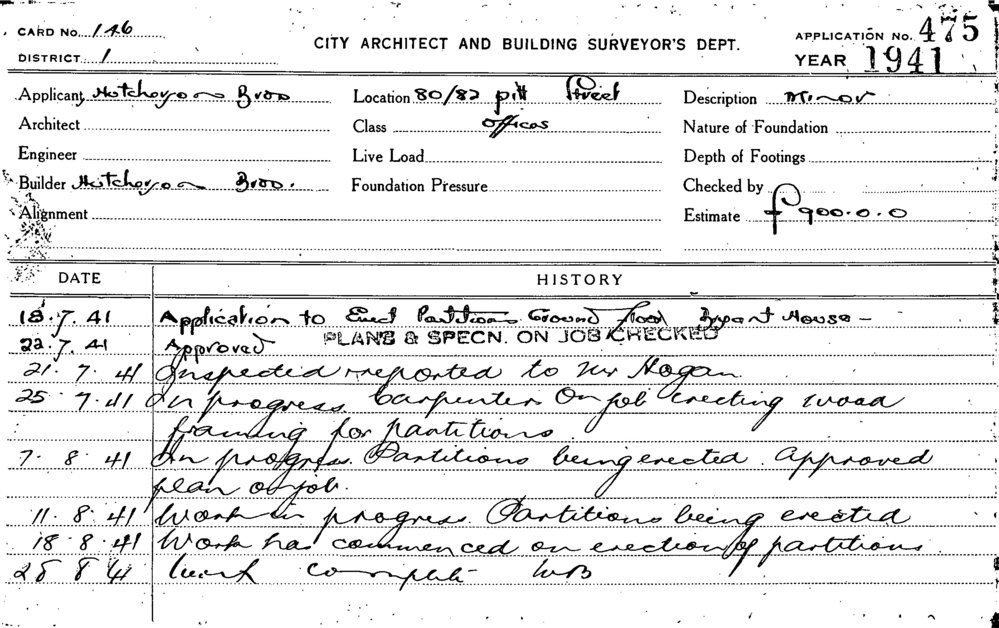 CARD No. 146
DISTRICT 1
CITY ARCHITECT AND BUILDING SURVEYOR'S DEPT.
APPLICATION No. 475
YEAR 1941
Applicant Hutcheson Bros
Location 80/82 pitt Street
Description Minor
Architect
Class Offices
Nature of Foundation
Engineer
Live Load
Depth of Footings
Builder Hutcheson Bros.
Foundation Pressure
Checked by
Alignment
Estimate £900.0.0
DATE HISTORY
18.7.41 Application to Erect Partitions Ground floor Bryant House -
22.7.41 Approved PLANS & SPECN. ON JOB CHECKED
21.7.41 Inspected & reported to Mr Hogan
25.7.41 In progress. Carpenters On job erecting wood
framing for partitions
7.8.41 In progress. Partitions being erected. Approved
plan on job.
11.8.41 Work in progress. Partitions being erected
18.8.41 Work has commenced on erection of partitions.
28 8 41 Work complete WB